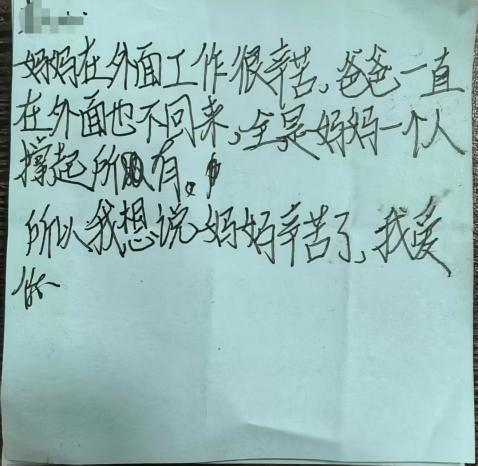 妈妈在外面工作很辛苦，爸爸一直
在外面也不回来，全是妈妈一个人
撑起所有。
所以我想说妈妈辛苦了，我爱
你